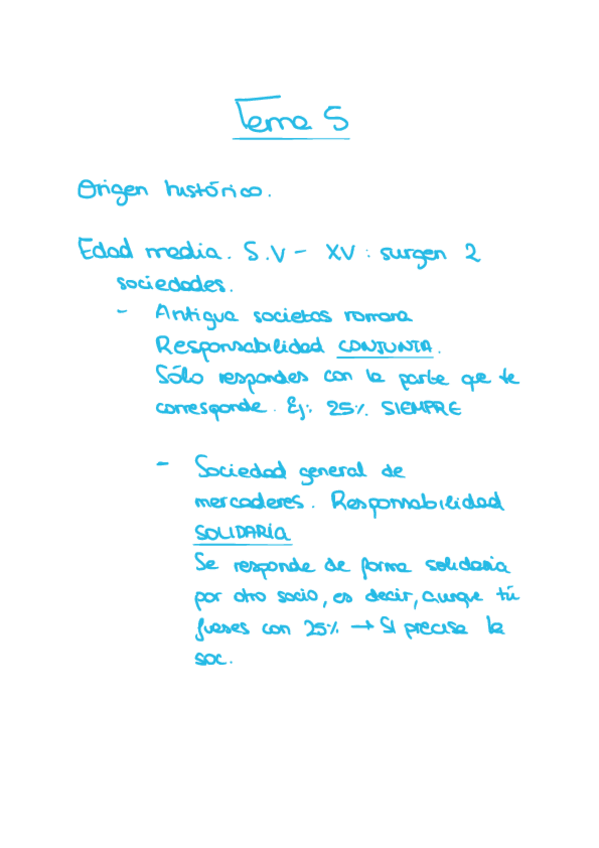 Tema 5
Origen histórico.
Edad media. S.V - XV : surgen 2
sociedades.
- Antigua societas romana
Responsabilidad CONJUNTA.
Sólo respondes con la parte que te
corresponde. Ej: 25% SIEMPRE
- Sociedad general de
mercaderes. Responsabilidad
SOLIDARÍA
Se responde de forma solidaria
por otro socio, es decir, aunque tú
fueses con 25% → SI precisa la
soc.